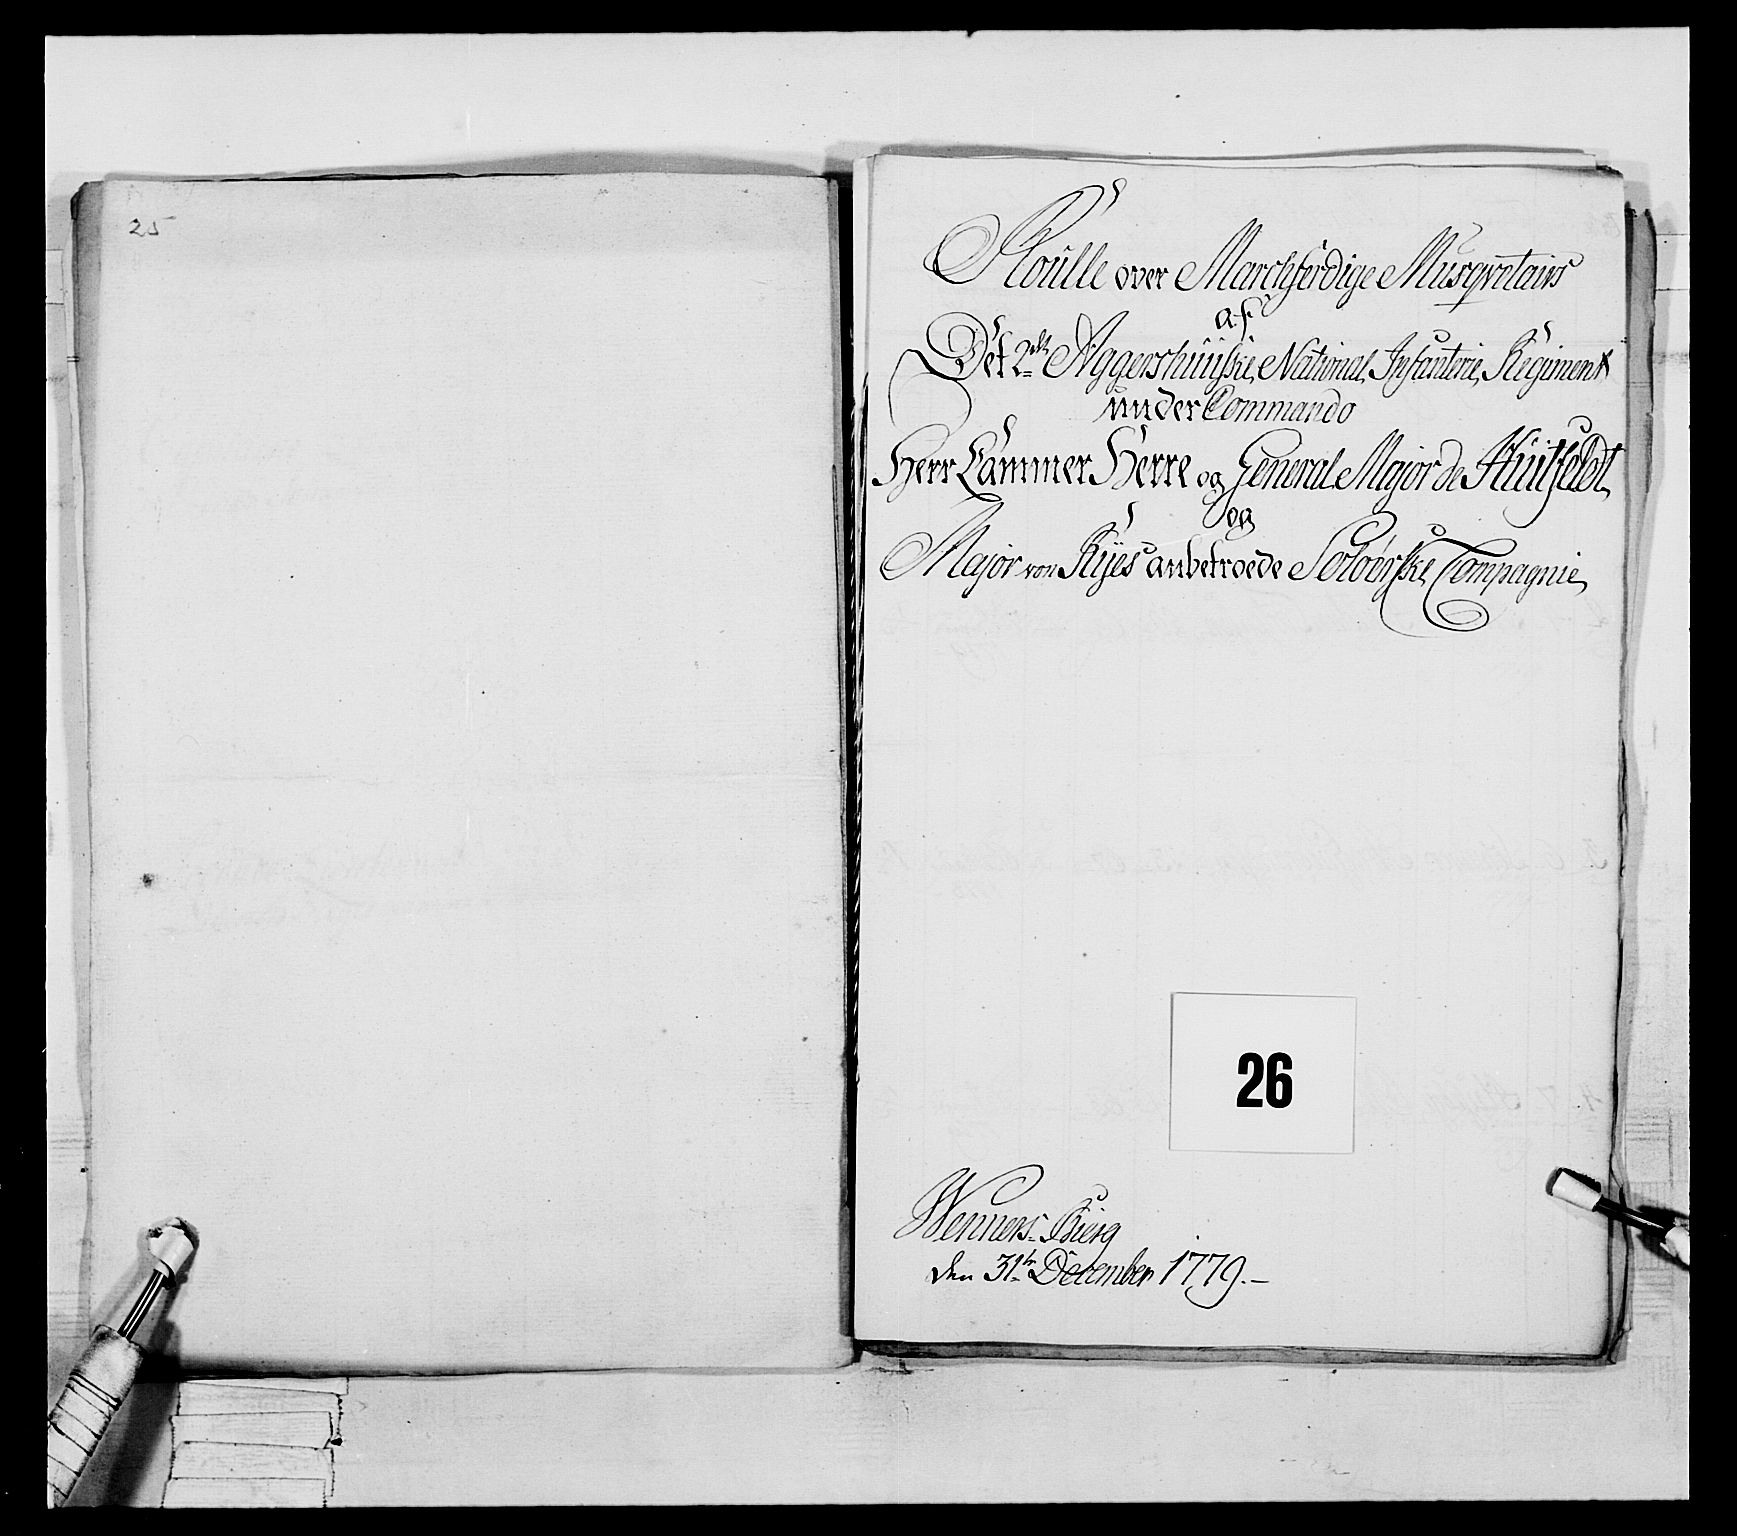 25
Roulle over Marchferdige Musqvetairs
af
Det 2det Aggershuusiske National Infanterie Regiment
under Commando
Herr Cammer Herre og General Major de Huitfeldt
og
Major von Ryes anbetroede Soloërske Compagnie
26
Wenners-Bierg
den 31te December 1779.-